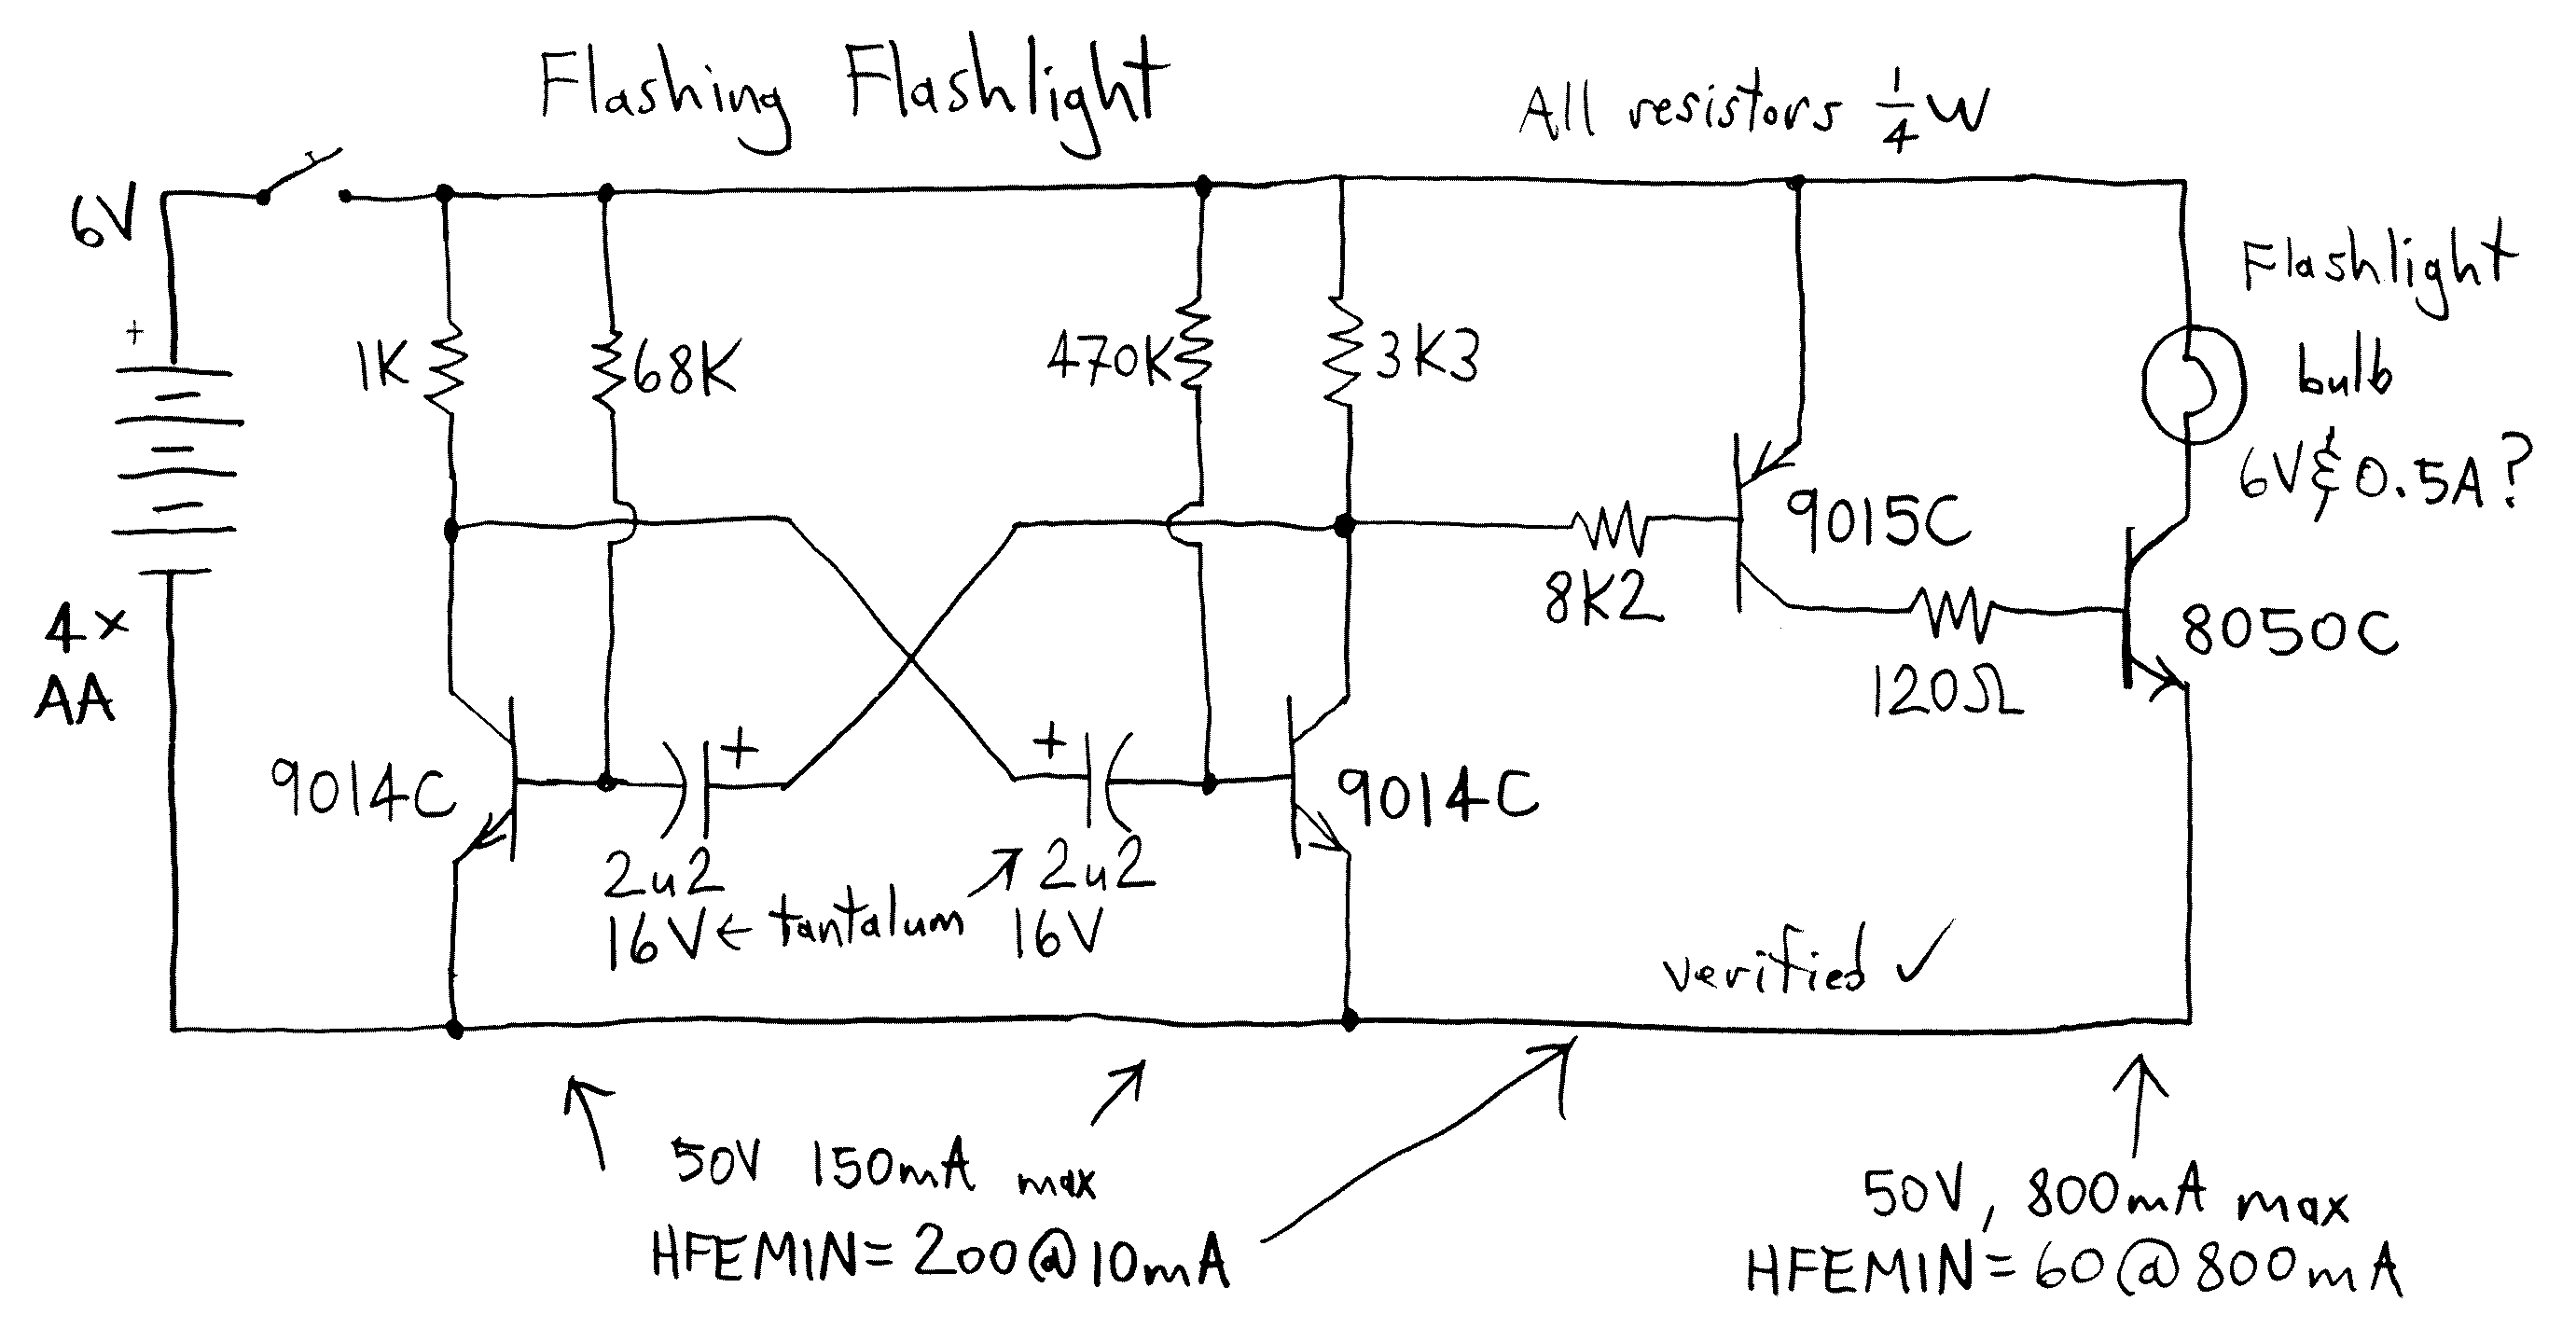 Flashing Flashlight
All resistors 1/4 W
6V
+
4×
AA
1K
68K
470K
3K3
Flashlight
bulb
6V & 0.5A?
8K2
9015C
120Ω
8050C
9014C
+
2u2
16V ← tantalum
+
2u2
16V
9014C
verified ✓
50V 150mA max
HFEMIN= 200@10mA
50V, 800mA max
HFEMIN= 60@800mA